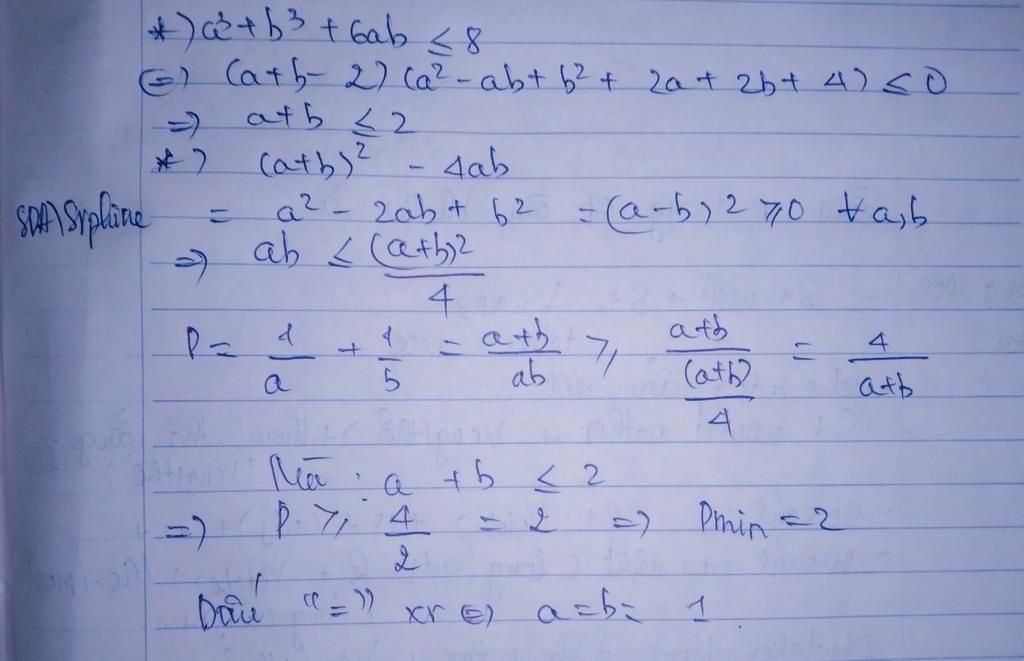 *) a³ + b³ + 6ab ≤ 8
(=) (a+b-2)(a² - ab + b² + 2a + 2b + 4) ≤ 0
=) a+b ≤ 2
*) (a+b)² - 4ab
= a² - 2ab + b² = (a-b)² ≥ 0 ∀ a,b
=) ab ≤ (a+b)²/4
P = 1/a + 1/b = (a+b)/ab ≥ (a+b)/((a+b)²/4) = 4/(a+b)
Mà : a + b ≤ 2
=) P ≥ 4/2 = 2 =) Pmin = 2
Dấu "=" xr (=) a=b= 1